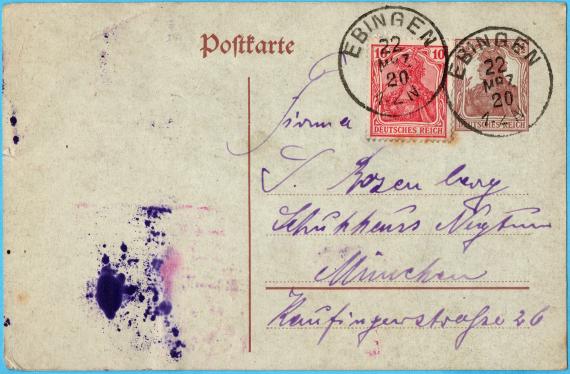 Postkarte
EBINGEN
22
MRZ
20
1-2.N
EBINGEN
22
MRZ
20
10
DEUTSCHES REICH
DEUTSCHES REICH
Firma
S. Rosenberg
Schuhhaus Neptun
München
Kaufingerstraße 26